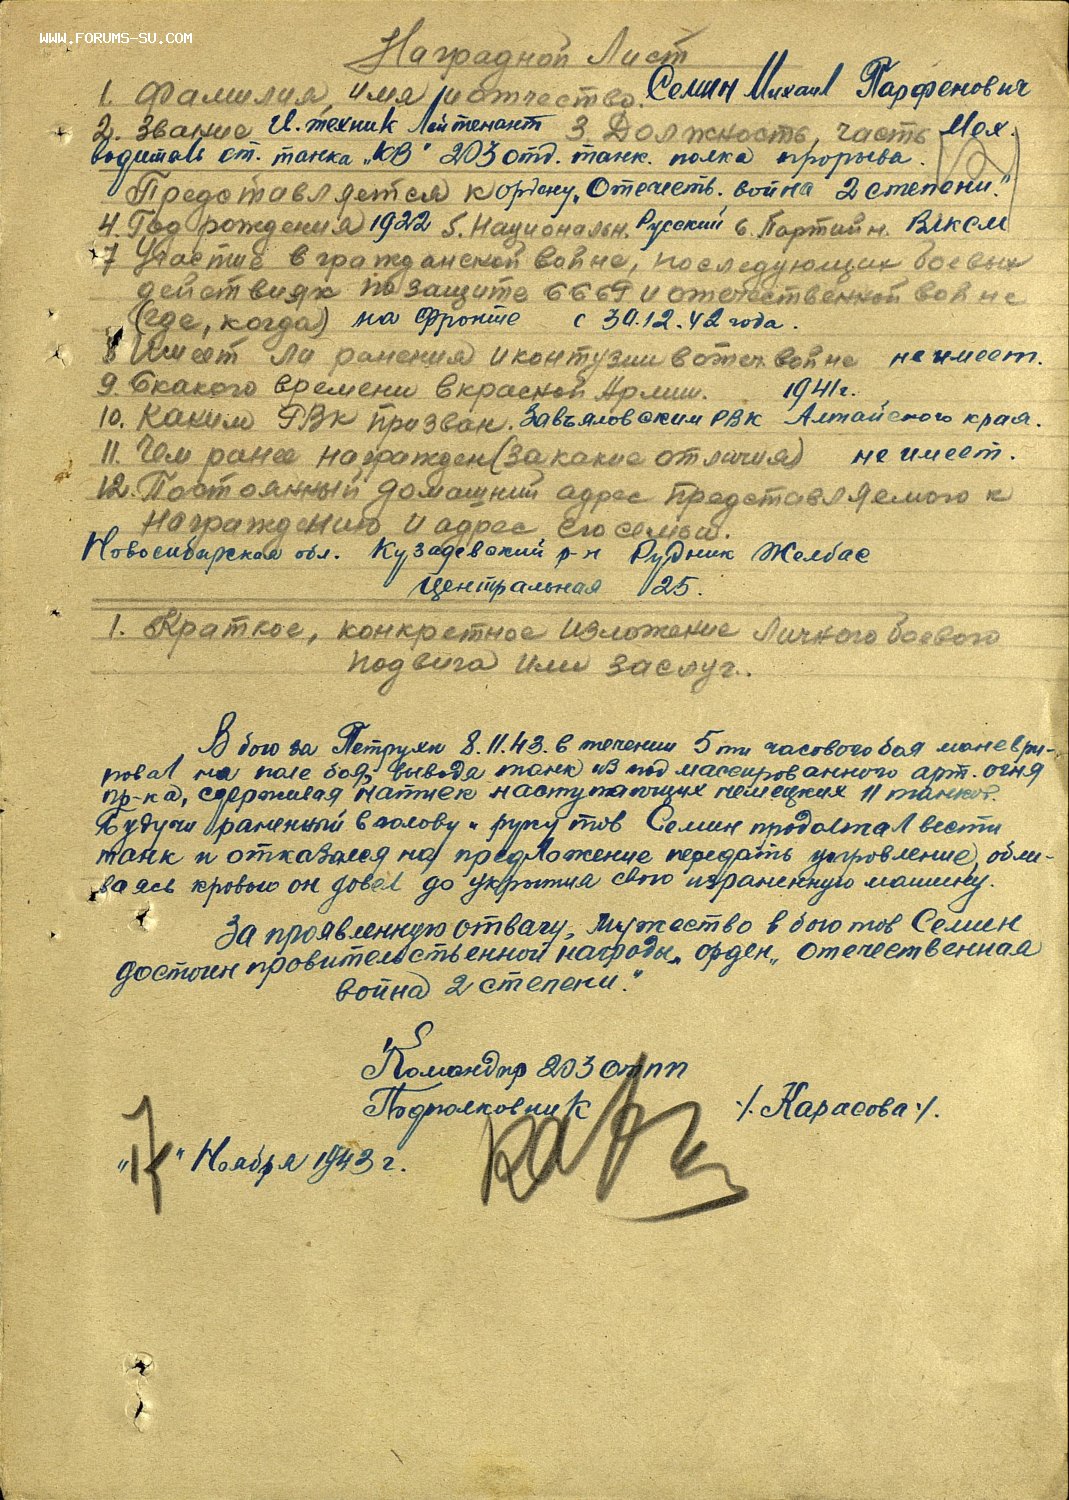 WWW.FORUMS-SU.COM
Наградной Лист
1. Фамилия, имя и отчество. Семин Михаил Парфенович
2. Звание И. техник Лейтенант 3. Должность, часть Мех.
водитель ст. танка „КВ" 203 отд. танк. полка прорыва.
Представляется к ордену „Отечеств. война 2 степени."
4. Год рождения 1922 5. Национальн. Русский 6. Партийн. ВЛКСМ
7 Участие в гражданской войне, последующих боевых
действиях по защите СССР и отечественной войне
(где, когда) на фронте с 30.12.42 года.
8 Имеет ли ранения и контузии в отеч. войне не имеет.
9. С какого времени в красной Армии. 1941 г.
10. Каким РВК призван. Завьяловским РВК Алтайского края.
11. Чем ранее награжден (за какие отличия) не имеет.
12. Постоянный домашний адрес представляемого к
награждению и адрес его семьи.
Новосибирская обл. Кузадеевский р-н Рудник Желбас
Центральная 25.
1. Краткое, конкретное изложение личного боевого
подвига или заслуг.
В бою за Петруяк 8.11.43. в течении 5ти часового боя маневри-
ровал на поле боя, выводя танк из под массированного арт. огня
пр-ка, сдерживая натиск наступающих немецких 11 танков.
Будучи раненный в голову и руку тов Семин продолжал вести
танк и отказался на предложение передать управление, обли-
ваясь кровью он довел до укрытия свою израненную машину.
За проявленную отвагу, мужество в бою тов Семин
достоин провительственной награды „орден „отечественная
война 2 степени."
Командир 203 отпп
Подполковник /. Карасова /.
„17" Ноября 1943 г.